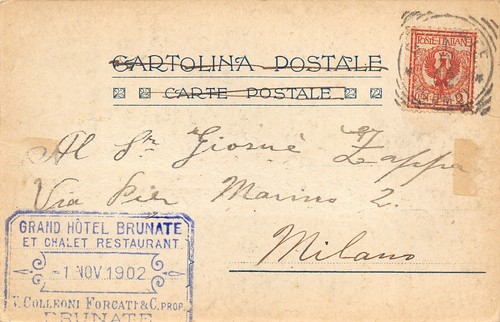 CARTOLINA POSTALE
CARTE POSTALE
POSTE ITALIANE
Al Sr Giosuè Zappa
Via Pier Marino 2.
Milano
GRAND HÔTEL BRUNATE
ET CHALET RESTAURANT
-1 NOV. 1902
V. COLLEONI FORCATI & C. PROP.
BRUNATE